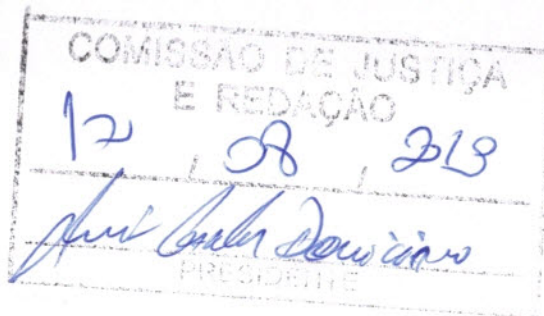 COMISSÃO DE JUSTIÇA
E REDAÇÃO
12 / 08 / 2019
Domiciano
PRESIDENTE